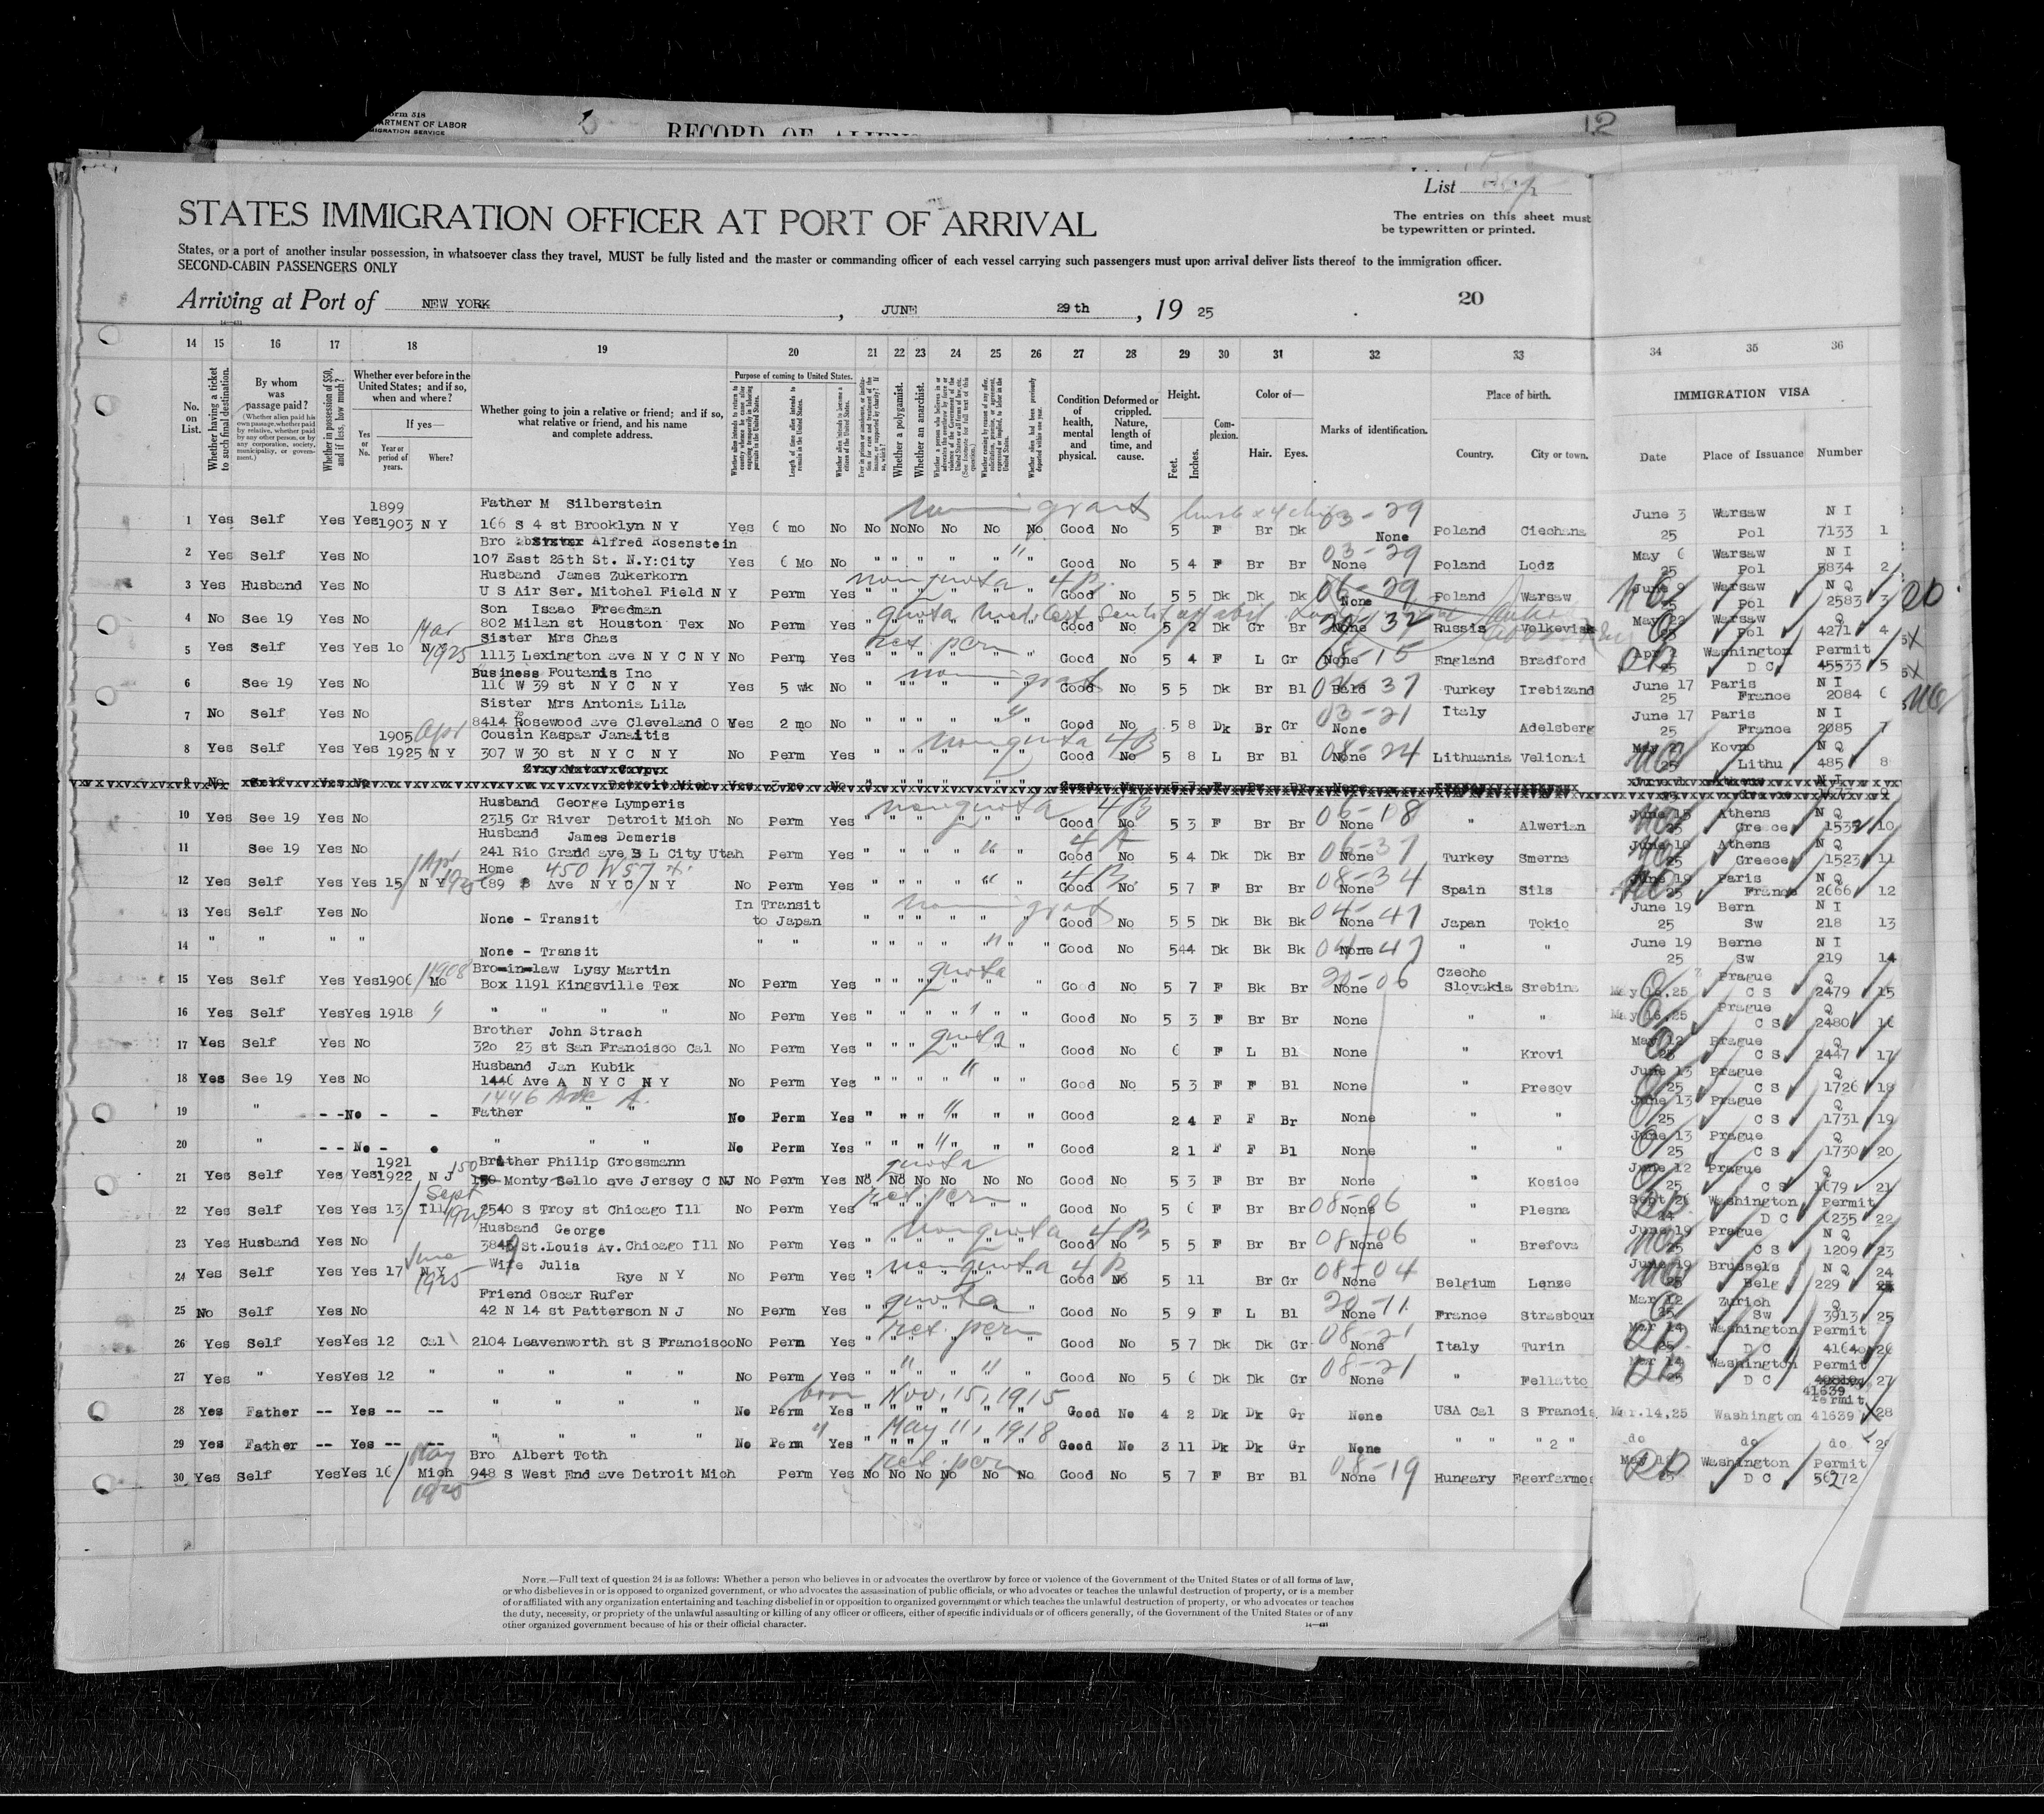 Form 518
DEPARTMENT OF LABOR
IMMIGRATION SERVICE
RECORD OF ALIENS
12
List
STATES IMMIGRATION OFFICER AT PORT OF ARRIVAL
The entries on this sheet must
be typewritten or printed.
States, or a port of another insular possession, in whatsoever class they travel, MUST be fully listed and the master or commanding officer of each vessel carrying such passengers must upon arrival deliver lists thereof to the immigration officer.
SECOND-CABIN PASSENGERS ONLY
Arriving at Port of NEW YORK , JUNE 29th , 19 25
20
14 15 16 17 18 19 20 21 22 23 24 25 26 27 28 29 30 31 32 33 34 35 36
No. on List.
Whether having a ticket to such final destination.
By whom was passage paid?
(Whether alien paid his own passage, whether paid by relative, whether paid by any other person, or by any corporation, society, municipality, or government.)
Whether in possession of $50, and if less, how much?
Whether ever before in the United States; and if so, when and where?
Yes or No.
If yes—
Year or period of years.
Where?
Whether going to join a relative or friend; and if so, what relative or friend, and his name and complete address.
Purpose of coming to United States.
Length of time alien intends to remain in the United States.
Whether alien intends to become a citizen of the United States.
Whether a polygamist.
Whether an anarchist.
Condition of health, mental and physical.
Deformed or crippled. Nature, length of time, and cause.
Height. Feet. Inches.
Complexion.
Color of— Hair. Eyes.
Marks of identification.
Place of birth. Country. City or town.
IMMIGRATION VISA
Date Place of Issuance Number
1899 Father M Silberstein nonimmigrant 03-29 June 3 Warsaw N I
1 Yes Self Yes Yes 1903 N Y 166 S 4 st Brooklyn N Y Yes 6 mo No No No No No No No Good No 5 F Br Dk None Poland Ciechana 25 Pol 7133 1
Bro Alfred Rosenstein " 03-29 May 6 Warsaw N I
2 Yes Self Yes No 107 East 26th St. N.Y.city Yes 6 Mo No " " " " " " Good No 5 4 F Br Br None Poland Lodz 25 Pol 5834 2
Husband James Zukerkorn nonquota 4B 06-29 June 9 Warsaw N Q
3 Yes Husband Yes No U S Air Ser. Mitchel Field N Y Perm Yes " " " " " " Good No 5 5 Dk Dk Dk None Poland Warsaw 25 Pol 2583 3
Son Isaac Freedman quota 20-32 May 22 Warsaw Q
4 No See 19 Yes No 802 Milan st Houston Tex No Perm Yes " " " " " " Good No 5 2 Dk Gr Br None Russia Volkevisk 25 Pol 4271 4
Mar 1925 Sister Mrs Chas ret. perm 08-15 Apr Washington Permit
5 Yes Self Yes Yes 10 N Y 1113 Lexington ave N Y C N Y No Perm Yes " " " " " " Good No 5 4 F L Gr None England Bradford 25 D C 45533 5
Business Foutanis Inc June 17 Paris N I
6 See 19 Yes No 116 W 39 st N Y C N Y Yes 5 wk No " " " " " " Good No 5 5 Dk Br Bl Bald Turkey Irebizand 25 France 2084 6
Sister Mrs Antonia Lila 03-21 Italy June 17 Paris N I
7 No Self Yes No 8414 Rosewood ave Cleveland O Yes 2 mo No " " " " " " Good No 5 8 Dk Br Gr None Adelsberg 25 France 2085 7
1905 Apr Cousin Kaspar Janaitis nonquota 4B 08-24 May 27 Kovno N Q
8 Yes Self Yes Yes 1925 N Y 307 W 30 st N Y C N Y No Perm Yes " " " " " " Good No 5 8 L Br Bl None Lithuania Velionsi 25 Lithu 485 8
9 No Self Yes No Detroit Mich Yes 3 mo No
Husband George Lymperis nonquota 4B 06-18 June 15 Athens N Q
10 Yes See 19 Yes No 2315 Gr River Detroit Mich No Perm Yes " " " " " " Good No 5 3 F Br Br None " Alwerian 25 Greece 1532 10
Husband James Demeris " 4A 06-37 June 10 Athens N Q
11 See 19 Yes No 241 Rio Grand ave S L City Utah Perm Yes " " " " " " Good No 5 4 Dk Dk Br None Turkey Smerna 25 Greece 1523 11
Apr 1925 Home 450 W 57 st. " 4B 08-34 June 19 Paris N Q
12 Yes Self Yes Yes 15 N Y 689 8 Ave N Y C N Y No Perm Yes " " " " " " Good No 5 7 F Br Br None Spain Sils 25 France 2666 12
In Transit nonimmigrant 04-47 June 19 Bern N I
13 Yes Self Yes No None - Transit to Japan " " " " " " Good No 5 5 Dk Bk Bk None Japan Tokio 25 Sw 218 13
04-47 June 19 Berne N I
14 " " " " None - Transit " " " " " " " " Good No 5 4 4 Dk Bk Bk None " " 25 Sw 219 14
1908 Bro-in-law Lysy Martin quota 20-06 Czecho Prague Q
15 Yes Self Yes Yes 1906 Mo Box 1191 Kingsville Tex No Perm Yes " " " " " " Good No 5 7 F Bk Br None Slovakia Srebina May 16,25 C S 2479 15
16 Yes Self Yes Yes 1918 " " " " No Perm Yes " " " " " " Good No 5 3 F Br Br None " " May 16,25 Prague C S Q 2480 16
Brother John Strach quota May 12 Prague Q
17 Yes Self Yes No 320 23 st San Francisco Cal No Perm Yes " " " " " " Good No 6 F L Bl None " Krovi 25 C S 2447 17
Husband Jan Kubik " June 13 Prague Q
18 Yes See 19 Yes No 1446 Ave A N Y C N Y No Perm Yes " " " " " " Good No 5 3 F F Bl None " Presov 25 C S 1726 18
1446 Ave A. June 13 Prague Q
19 " - -No - - Father " " No Perm Yes " " " " " " Good 2 4 F F Br None " " 25 C S 1731 19
June 13 Prague Q
20 " - - No - " " " No Perm Yes " " " " " " Good 2 1 F F Bl None " " 25 C S 1730 20
1921 150 Brother Philip Grossmann quota June 12 Prague Q
21 Yes Self Yes Yes 1922 N J Monty Sello ave Jersey C NJ No Perm Yes No No No No No No Good No 5 3 F Br Br None " Kosice 25 C S 1679 21
Sept ret. perm 08-06 Sept 26 Washington Permit
22 Yes Self Yes Yes 13 Ill 2540 S Troy st Chicago Ill No Perm Yes " " " " " " Good No 5 6 F Br Br None " Plesna 24 D C 6235 22
Husband George nonquota 4B 08-06 June 19 Prague N Q
23 Yes Husband Yes No St.Louis Av. Chicago Ill No Perm Yes " " " " " " Good No 5 5 F Br Br None " Brefova 25 C S 1209 23
June 1925 Wife Julia nonquota 4B 08-04 June 19 Brussels N Q 24
24 Yes Self Yes Yes 17 N Y Rye N Y No Perm Yes " " " " " " Good No 5 11 Br Gr None Belgium Lenze 25 Belg 229
Friend Oscar Rufer quota 20-11 Mar 12 Zurich Q
25 No Self Yes No 42 N 14 st Patterson N J No Perm Yes " " " " " " Good No 5 9 F L Bl None France Strasbour 25 Sw 3913 25
ret. perm 08-21 Mar 14 Washington Permit
26 Yes Self Yes Yes 12 Cal 2104 Leavenworth st S Francisco No Perm Yes " " " " " " Good No 5 7 Dk Dk Gr None Italy Turin 25 D C 41640 26
" " 08-21 Mar 14 Washington Permit
27 Yes " Yes Yes 12 " " " " " No Perm Yes " " " " " " Good No 5 6 Dk Dk Gr None " Fellatto 25 D C 41639 27
born Nov. 15, 1915 Permit
28 Yes Father -- Yes -- -- " " " " No Perm Yes " " " " " " Good No 4 2 Dk Dk Gr None USA Cal S Francis Mar.14,25 Washington 41639 28
" May 11, 1918
29 Yes Father -- Yes -- -- " " " " No Perm Yes " " " " " " Good No 3 11 Dk Dk Gr None " " " 2 " do do do 29
May 1925 Bro Albert Toth ret. perm 08-19 May Washington Permit
30 Yes Self Yes Yes 16 Mich 948 S West End ave Detroit Mich Perm Yes No No No No No No Good No 5 7 F Br Bl None Hungary Egerfarmos 25 D C 56272
NOTE.—Full text of question 24 is as follows: Whether a person who believes in or advocates the overthrow by force or violence of the Government of the United States or of all forms of law,
or who disbelieves in or is opposed to organized government, or who advocates the assassination of public officials, or who advocates or teaches the unlawful destruction of property, or is a member
of or affiliated with any organization entertaining and teaching disbelief in or opposition to organized government or which teaches the unlawful destruction of property, or who advocates or teaches
the duty, necessity, or propriety of the unlawful assaulting or killing of any officer or officers, either of specific individuals or of officers generally, of the Government of the United States or of any
other organized government because of his or their official character.
14—421